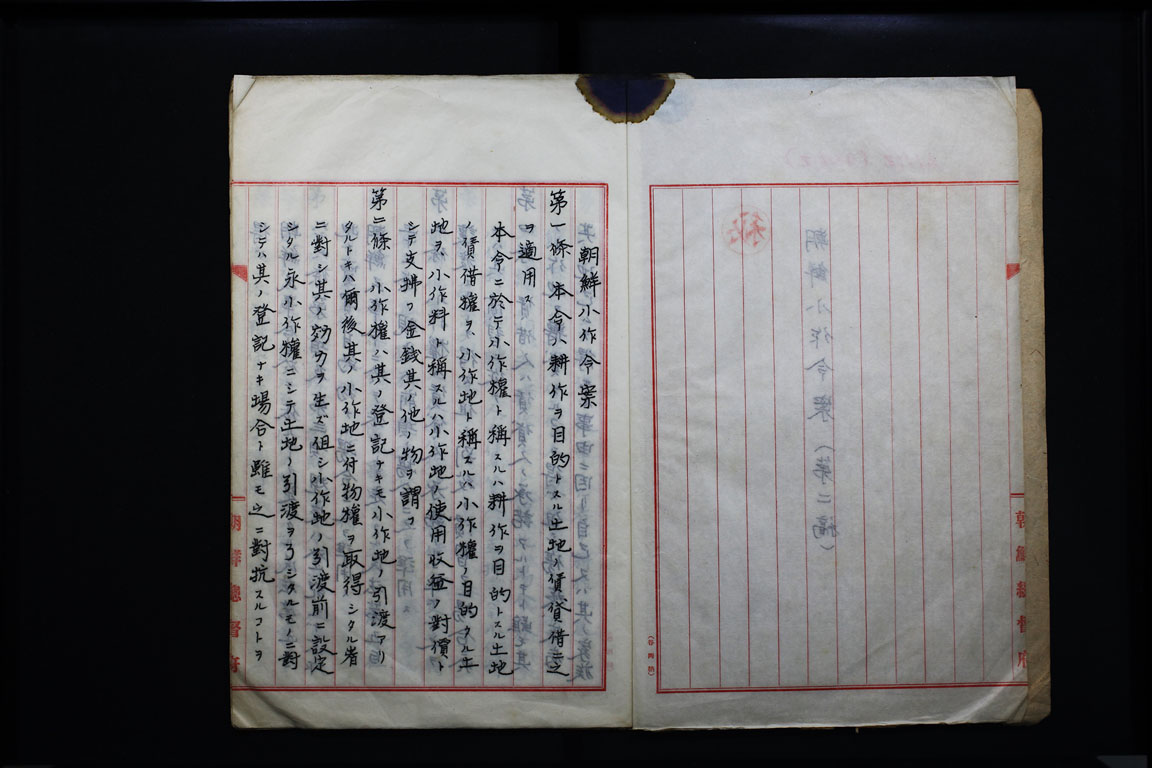 朝鮮小作令案(第二稿)
秘
朝鮮總督府
朝鮮小作令案
第一條 本令ハ耕作ヲ目的トスル土地ノ賃貸借ニ之
ヲ適用ス
本令ニ於テ小作權ト稱スルハ耕作ヲ目的トスル土地
ノ賃借權ヲ、小作地ト稱スルハ小作權ノ目的タル土
地ヲ小作料ト稱スルハ小作地ノ使用收益ノ對價ト
シテ支拂フ金錢其ノ他ノ物ヲ謂フ
第二條 小作權ハ其ノ登記ナキモ小作地ノ引渡アリ
タルトキハ爾後其ノ小作地ニ付物權ヲ取得シタル者
ニ對シ其ノ効力ヲ生ズ但シ小作地ノ引渡前ニ設定
シタル永小作權ニシテ土地ノ引渡ヲ了シタルモノニ對
シテハ其ノ登記ナキ場合ト雖モ之ニ對抗スルコトヲ
朝鮮總督府